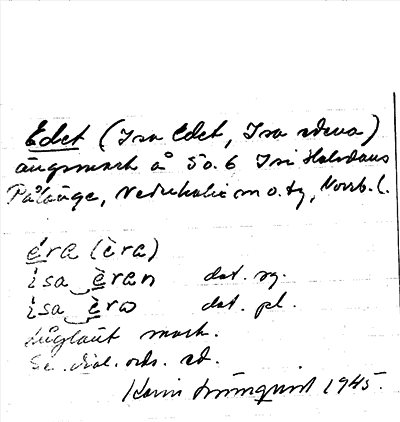 Edet (Isa Edet, Isa edena)
ängsmark å 5 o. 6 Isi Halvdans
Pålänge, Nederkalix sn o. tg, Norrb. l.
éra (èra)
isa èran dat. sg.
isa èro dat. pl.
låglänt mark.
Se dial. ords. ed.
Karin 1945.